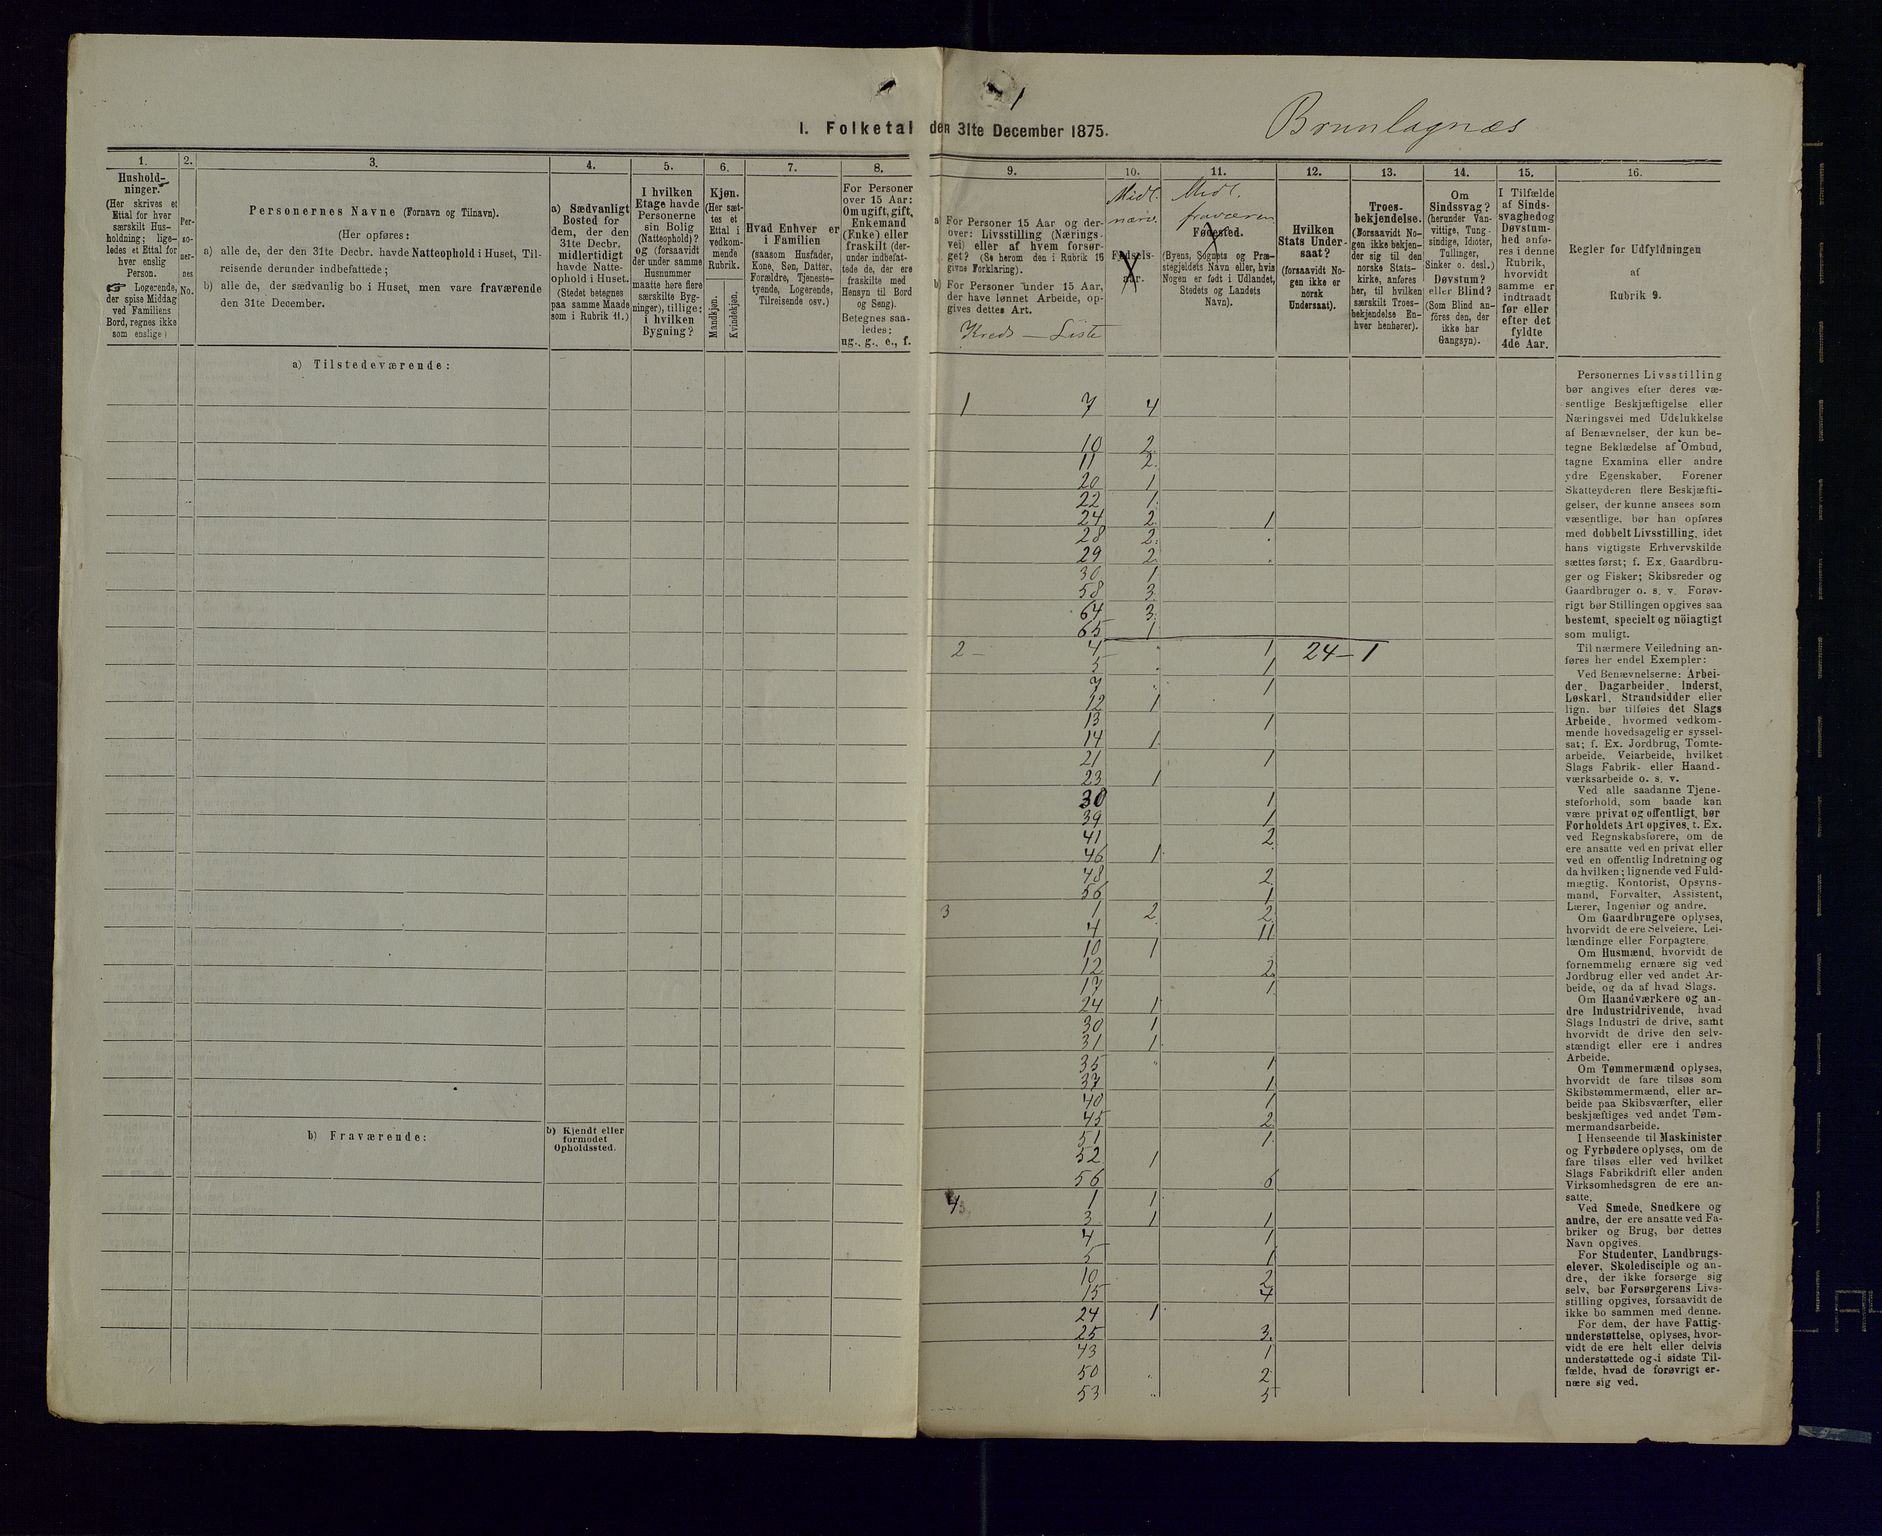 1
Brunlagnæs
I. Folketal den 31te December 1875.
1.
Hushold-
ninger.
(Her skrives et
Ettal for hver
særskilt Hus-
holdning; lige-
ledes et Ettal for
hver enslig
Person.
☞ Logerende,
der spise Middag
ved Familiens
Bord, regnes ikke
som enslige)
2.
Per-
so-
ner-
nes
No.
3.
Personernes Navne (Fornavn og Tilnavn).
(Her opføres:
a) alle de, der den 31te Decbr. havde Natteophold i Huset, Til-
reisende derunder indbefattede;
b) alle de, der sædvanlig bo i Huset, men vare fraværende
den 31te December.
4.
a) Sædvanligt
Bosted for
dem, der den
31te Decbr.
midlertidigt
havde Natte-
ophold i Huset.
(Stedet betegnes
paa samme Maade
som i Rubrik 11.)
5.
I hvilken
Etage havde
Personerne
sin Bolig
(Natteophold)?
og (forsaavidt
der under samme
Husnummer
maatte høre flere
særskilte Byg-
ninger), tillige:
i hvilken
Bygning?
6.
Kjøn.
(Her sæt-
tes et
Ettal i
vedkom-
mende
Rubrik.
Mandkjøn.
Kvindekjøn.
7.
Hvad Enhver er
i Familien
(saasom Husfader,
Kone, Søn, Datter,
Forældre, Tjeneste-
tyende, Logerende,
Tilreisende osv.)
8.
For Personer
over 15 Aar:
Om ugift, gift,
Enkemand
(Enke) eller
fraskilt (der-
under indbefat-
tede de, der ere
fraskilte med
Hensyn til Bord
og Seng).
Betegnes saa-
ledes:
ug., g., e., f.
9.
a For Personer 15 Aar og der-
over: Livsstilling (Nærings-
vei) eller af hvem forsør-
get? (Se herom den i Rubrik 16
givne Forklaring).
b) For Personer under 15 Aar,
der have lønnet Arbeide, op-
gives dettes Art.
Kreds — Liste
10.
Midl.
nærv.
Fødsels-
aar.
11.
Midl.
fraværen
Fødested.
(Byens, Sognets og Præ-
stegjeldets Navn eller, hvis
Nogen er født i Udlandet,
Stedets og Landets
Navn).
12.
Hvilken
Stats Under-
saat?
(forsaavidt No-
gen ikke er
norsk
Undersaat).
13.
Troes-
bekjendelse.
(Forsaavidt No-
gen ikke bekjen-
der sig til den
norske Stats-
kirke, anføres
her, til hvilken
særskilt Troes-
bekjendelse En-
hver henhører).
14.
Om
Sindssvag?
(herunder Van-
vittige, Tung-
sindige, Idioter,
Tullinger,
Sinker o. desl.)
Døvstum?
eller Blind?
(Som Blind an-
föres den, der
ikke har
Gangsyn).
15.
I Tilfælde
af Sinds-
svaghed og
Døvstum-
hed anfø-
res i denne
Rubrik,
hvorvidt
samme er
indtraadt
før eller
efter det
fyldte
4de Aar.
16.
Regler for Udfyldningen
af
Rubrik 9.
a) Tilstedeværende:
1 7 4
10 2
11 2
20 1
22 1
24 2 1
28 2
29 2
30 1
58 3
64 3
65 1
2 — 4 " 1 24 — 1
5 " 1
7 " 1
12 1
13 1
14 1
21 1
23 1
30 1
39 1
41 2
46 1
48 2
56 1
3 1 2 2
4 11
10 1
12 2
17 1
24 1
30 1
31 1
35 " 1
37 1
40 1
45 2
51 1
52 1
56 6
4 1 1
3 1 1
4 1
5 1
10 2
15 4
24 1
25 3
43 1
50 " 2
53 " 5
b) Fraværende:
b) Kjendt eller
formodet
Opholdssted.
Personernes Livsstilling
bør angives efter deres væ-
sentlige Beskjæftigelse eller
Næringsvei med Udelukkelse
af Benævnelser, der kun be-
tegne Beklædelse af Ombud,
tagne Examina eller andre
ydre Egenskaber. Forener
Skatteyderen flere Beskjæfti-
gelser, der kunne ansees som
væsentlige, bør han opføres
med dobbelt Livsstilling, idet
hans vigtigste Erhvervskilde
sættes først; f. Ex. Gaardbru-
ger og Fisker; Skibsreder og
Gaardbruger o. s. v. Forøv-
rigt bør Stillingen opgives saa
bestemt, specielt og nöiagtigt
som muligt.
Til nærmere Veiledning an-
føres her endel Exempler:
Ved Benævnelserne: Arbei-
der, Dagarbeider, Inderst,
Løskarl, Strandsidder eller
lign. bør tilføies det Slags
Arbeide, hvormed vedkom-
mende hovedsagelig er syssel-
sat; f. Ex. Jordbrug, Tomte-
arbeide, Veiarbeide, hvilket
Slags Fabrik- eller Haand-
værksarbeide o. s. v.
Ved alle saadanne Tjene-
steforhold, som baade kan
være privat og offentligt, bør
Forholdets Art opgives, t. Ex.
ved Regnskabsførere, om de
ere ansatte ved en privat eller
ved en offentlig Indretning og
da hvilken; lignende ved Fuld-
mægtig, Kontorist, Opsyns-
mand, Forvalter, Assistent,
Lærer, Ingeniør og andre.
Om Gaardbrugere oplyses,
hvorvidt de ere Selveiere, Lei-
lændinge eller Forpagtere.
Om Husmænd, hvorvidt de
fornemmelig ernære sig ved
Jordbrug eller ved andet Ar-
beide, og da af hvad Slags.
Om Haandværkere og an-
dre Industridrivende, hvad
Slags Industri de drive, samt
hvorvidt de drive den selv-
stændigt eller ere i andres
Arbeide.
Om Tømmermænd oplyses,
hvorvidt de fare tilsøs som
Skibstømmermænd, eller ar-
beide paa Skibsværfter, eller
beskjæftiges ved andet Tøm-
mermandsarbeide.
I Henseende til Maskinister
og Fyrbødere oplyses, om de
fare tilsøs eller ved hvilket
Slags Fabrikdrift eller anden
Virksomhedsgren de ere an-
satte.
Ved Smede, Snedkere og
andre, der ere ansatte ved Fa-
briker og Brug, bør dettes
Navn opgives.
For Studenter, Landbrugs-
elever, Skoledisciple og an-
dre, der ikke forsørge sig
selv, bør Forsørgerens Livs-
stilling opgives, forsaavidt de
ikke bo sammen med denne.
For dem, der have Fattig-
understøttelse, oplyses, hvor-
vidt de ere helt eller delvis
understøttede og i sidste Til-
fælde, hvad de forøvrigt er-
nære sig ved.